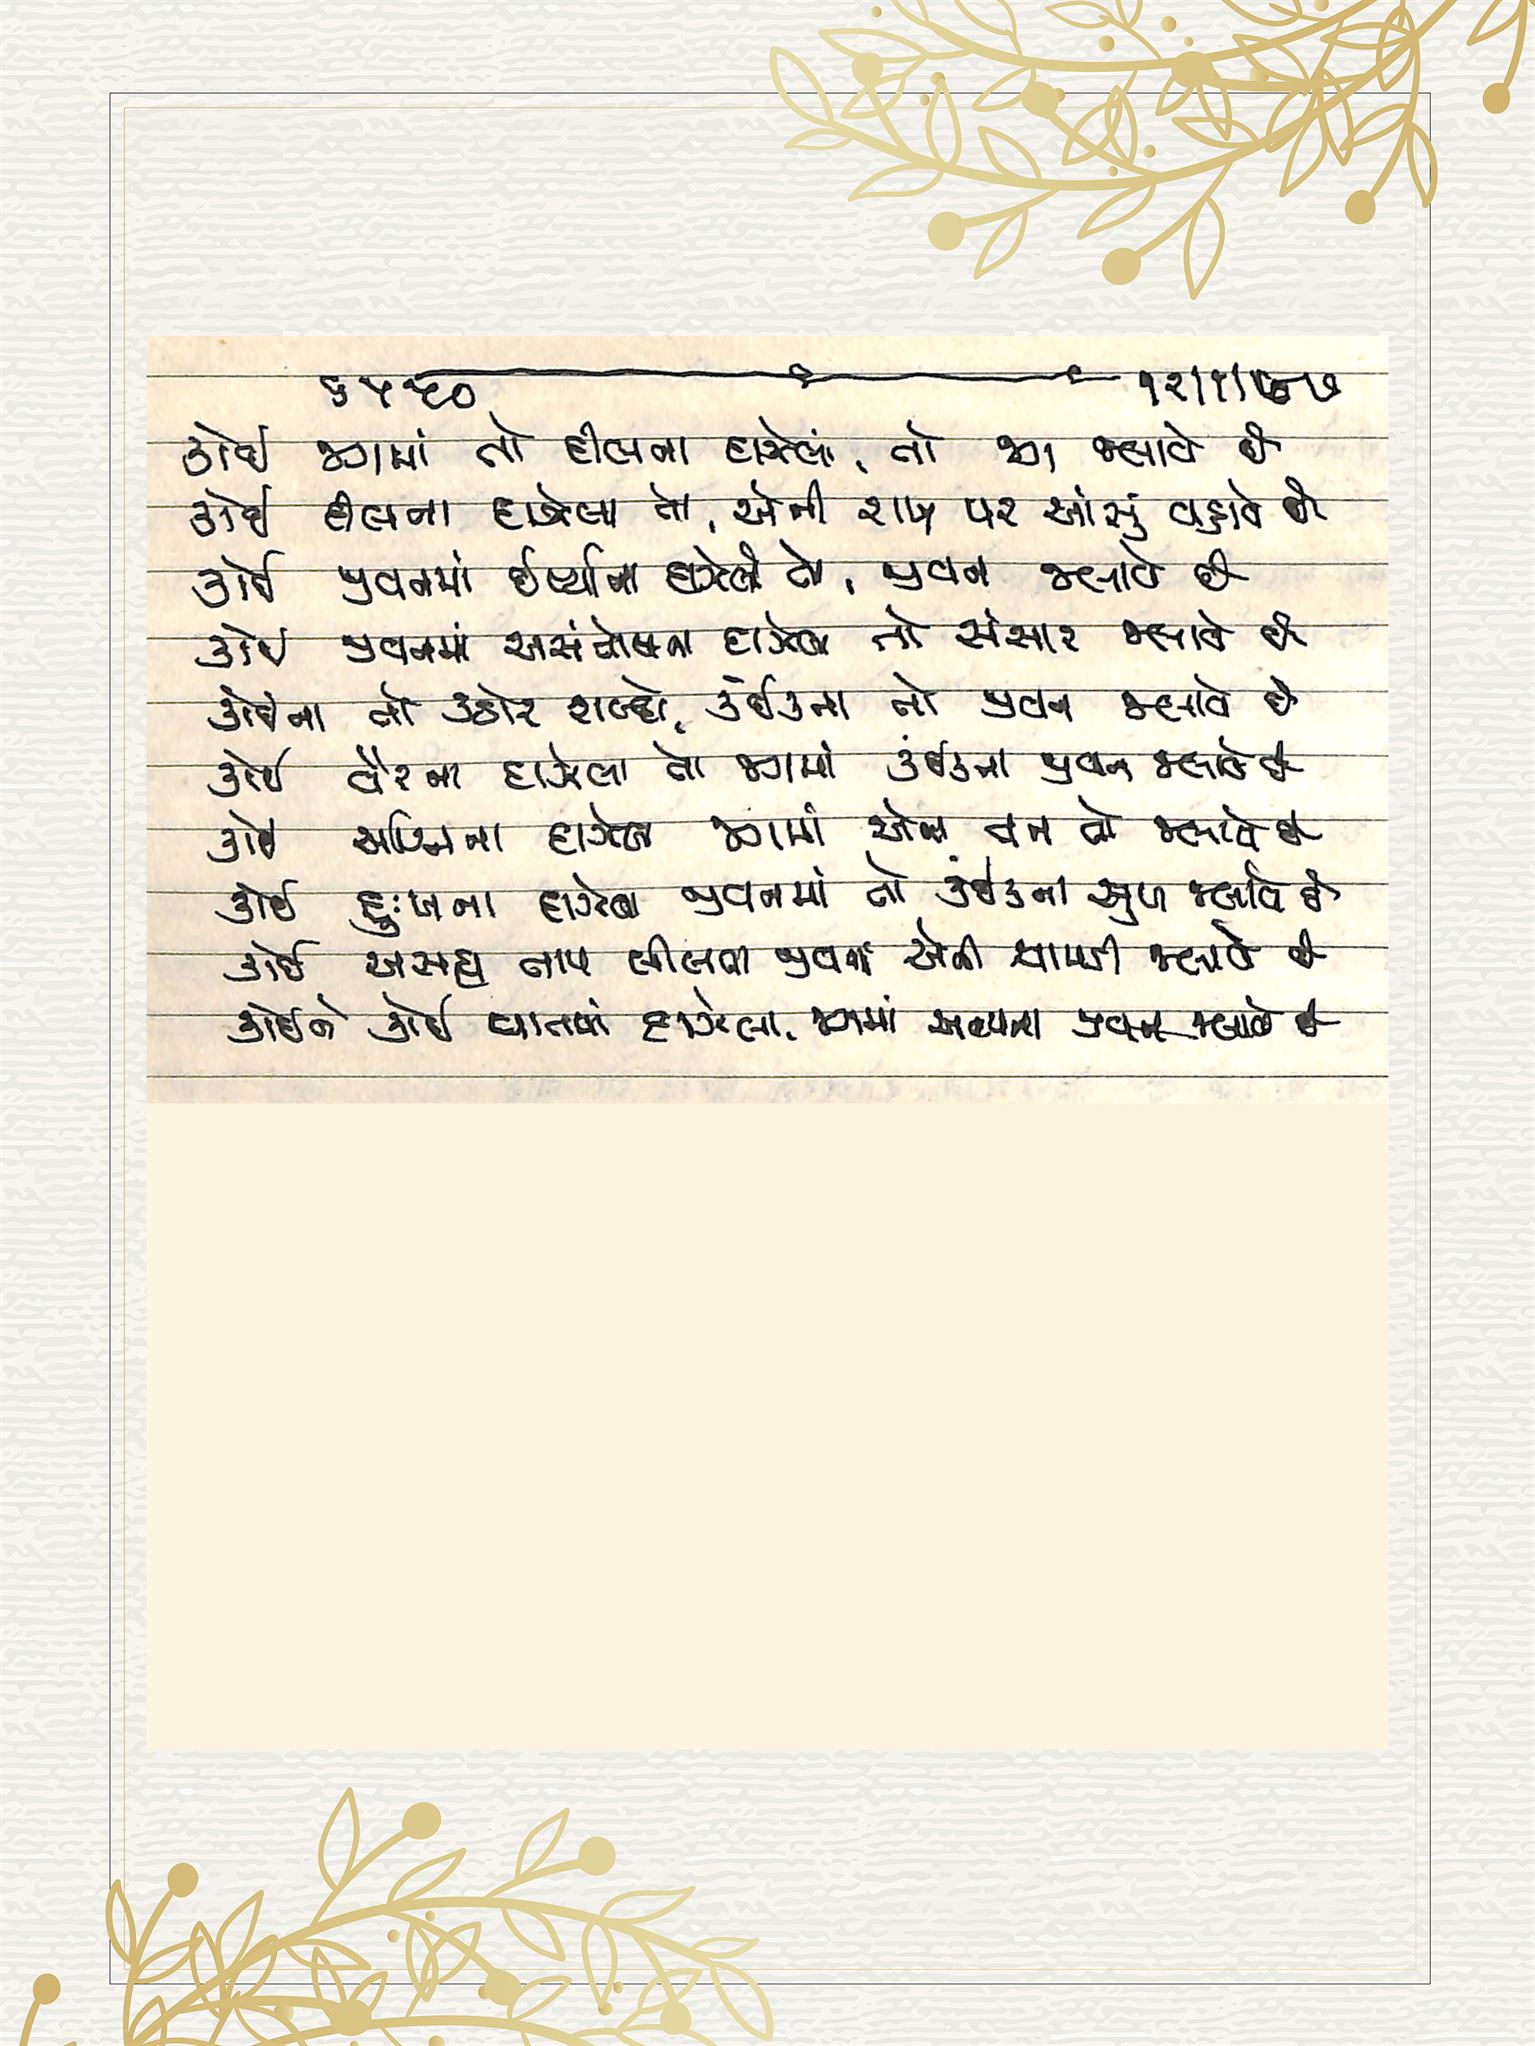 ૬૫૬૦ ૧૨/૧/૯૭
કોઈ જગમાં તો દીલના દાઝેલાં, તો જગ જલાવે છે
કોઈ દીલના દાઝેલા તો, એની રાખ પર આંસું વહાવે છે
કોઈ જીવનમાં ઈર્ષ્યાના દાઝેલા તો, જીવન જલાવે છે
કોઈ જીવનમાં અસંતોષના દાઝેલા તો સંસાર જલાવે છે
કોઈના તો કઠોર શબ્દો, કંઈકના તો જીવન જલાવે છે
કોઈ વૈરના દાઝેલા તો જગમાં કંઈકના જીવન જલાવે છે
કોઈ અગ્નિના દાઝેલા જગમાં એના તન તો જલાવે છે
કોઈ દુઃખના દાઝેલા જીવનમાં તો કંઈકના સુખ જલાવે છે
કોઈ અસહ્ય તાપ ઝીલતા જીવનમાં એની ચામડી જલાવે છે
કોઈને કોઈ વાતમાં દાઝેલા, જગમાં અન્યના જીવન જલાવે છે